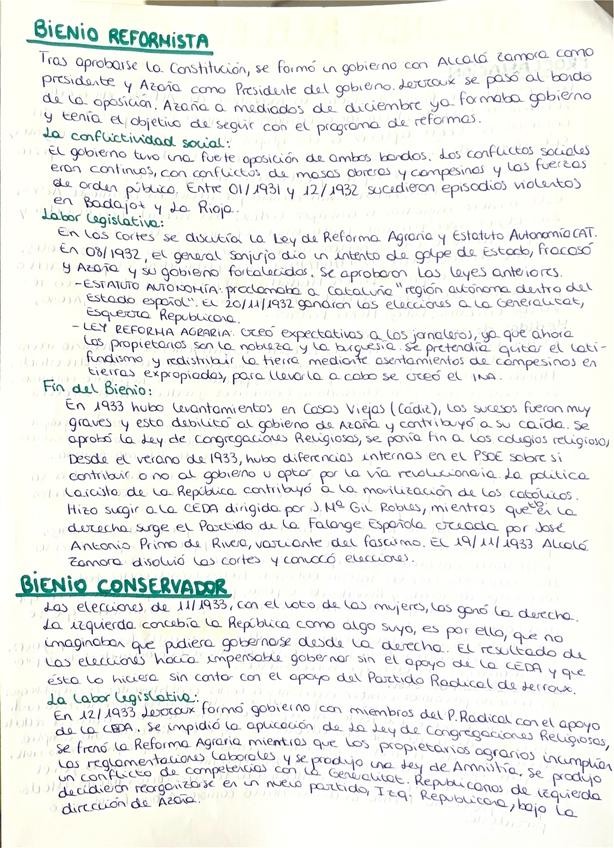 BIENIO REFORMISTA
Tras aprobarse la Constitución, se formó un gobierno con Alcalá Zamora como
presidente y Azaña como Presidente del gobierno. Lerroux se pasó al bando
de la oposición. Azaña a mediados de diciembre ya formaba gobierno
y tenía el objetivo de seguir con el programa de reformas.
La conflictividad social:
El gobierno tuvo una fuerte oposición de ambos bandos. Los conflictos sociales
eran continuos, con conflictos de masas obreras y campesinos y las fuerzas
de orden público. Entre 01/1931 y 12/1932 sucedieron episodios violentos
en Badajoz y La Rioja.
Labor legislativa:
En las cortes se discutía la Ley de Reforma Agraria y Estatuto Autonomía CAT.
En 08/1932, el general Sanjurjo dio un intento de golpe de Estado, fracasó
y Azaña y su gobierno fortalecidos. Se aprobaron las leyes anteriores.
- ESTATUTO AUTONOMÍA: proclamaba a Cataluña "región autónoma dentro del
Estado español". El 20/11/1932 ganaron las elecciones a la Generalitat,
Esquerra Republicana.
- LEY REFORMA AGRARIA: creó expectativas a los jornaleros, ya que ahora
los propietarios son la nobleza y la burguesía. Se pretendía quitar el lati-
fundismo y redistribuir la tierra mediante asentamientos de campesinos en
tierras expropiadas, para llevarla a cabo se creó el INA.
Fin del Bienio:
En 1933 hubo levantamientos en Casas Viejas (Cádiz), los sucesos fueron muy
graves y esto debilitó al gobierno de Azaña y contribuyó a su caída. Se
aprobó la Ley de Congregaciones Religiosas, se ponía fin a los colegios religiosos,
Desde el verano de 1933, hubo diferencias internas en el PSOE sobre si
contribuir o no al gobierno u optar por la vía revolucionaria. La política
laicista de la República contribuyó a la movilización de los católicos.
Hizo surgir a la CEDA dirigida por J.Mª Gil Robles, mientras que en la
derecha surge el Partido de la Falange Española creada por José
Antonio Primo de Rivera, variante del fascismo. El 19/11/1933 Alcalá
Zamora disolvió las cortes y convocó elecciones.
BIENIO CONSERVADOR
Las elecciones de 11/1933, con el voto de las mujeres, las ganó la derecha.
La izquierda concebía la República como algo suyo, es por ello, que no
imaginaban que pudiera gobernarse desde la derecha. El resultado de
las elecciones hacía impensable gobernar sin el apoyo de la CEDA y que
ésta lo hiciera sin contar con el apoyo del Partido Radical de Lerroux.
La labor legislativa:
En 12/1933 Lerroux formó gobierno con miembros del P.Radical con el apoyo
de la CEDA. Se impidió la aplicación de la Ley de Congregaciones Religiosas,
se frenó la Reforma Agraria mientras que los propietarios agrarios incumplían
las reglamentaciones laborales y se produjo una Ley de Amnistía. Se produjo
un conflicto de competencias con la Generalitat. Republicanos de izquierda
decidieron reorganizarse en un nuevo partido, Izq. Republicana, bajo la
dirección de Azaña.